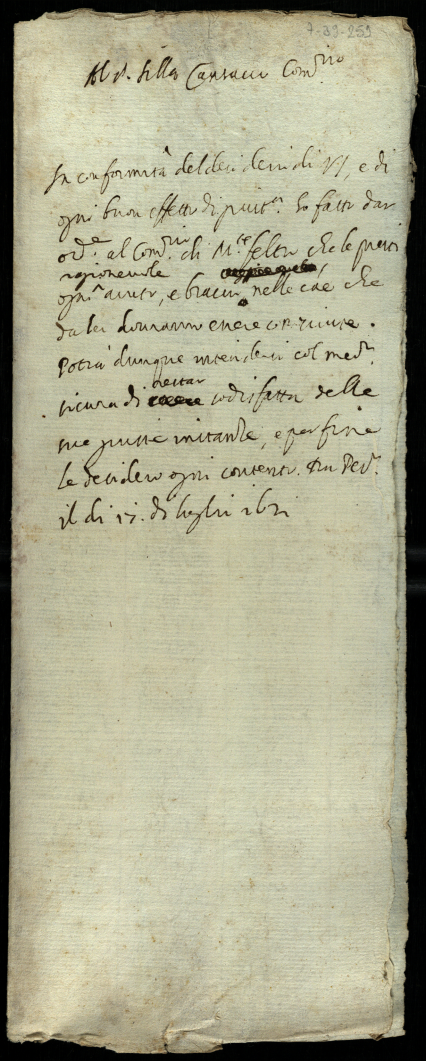 7-33-253
Al S. Silla Cansacci Com.rio
In conformità del desiderio di VS, e di
ogni buon effetto di giust.a ho fatto dar
ord.e al Com.rio di M.te feltro che le presti
ragionevole
ogni aiuto, e braccio nelle cose che
da lei doveranno essere
Potrà dunque intendersi col med.o
restar
sicura di sodisfatta delle
sue giuste instanze, e per fine
le desidero ogni contento. Di Pes.o
il di 15. di luglio 1621